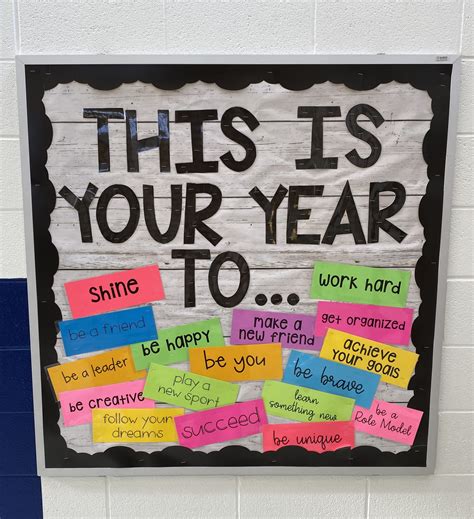 THIS IS
YOUR YEAR
TO...
Shine
work hard
be a friend
make a
new friend
get organized
be happy
achieve
your goals
be a leader
be you
be brave
play a
new sport
be creative
learn
something new
follow your
dreams
succeed
be a
Role Model
be unique